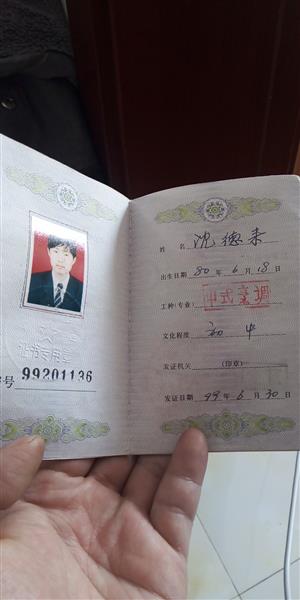 证书专用章
号99201136
姓 名 沈德来
出生日期 80年6月18日
工种(专业) 中式烹调
文化程度 初中
发证机关 (印章)
发证日期 99年6月30日